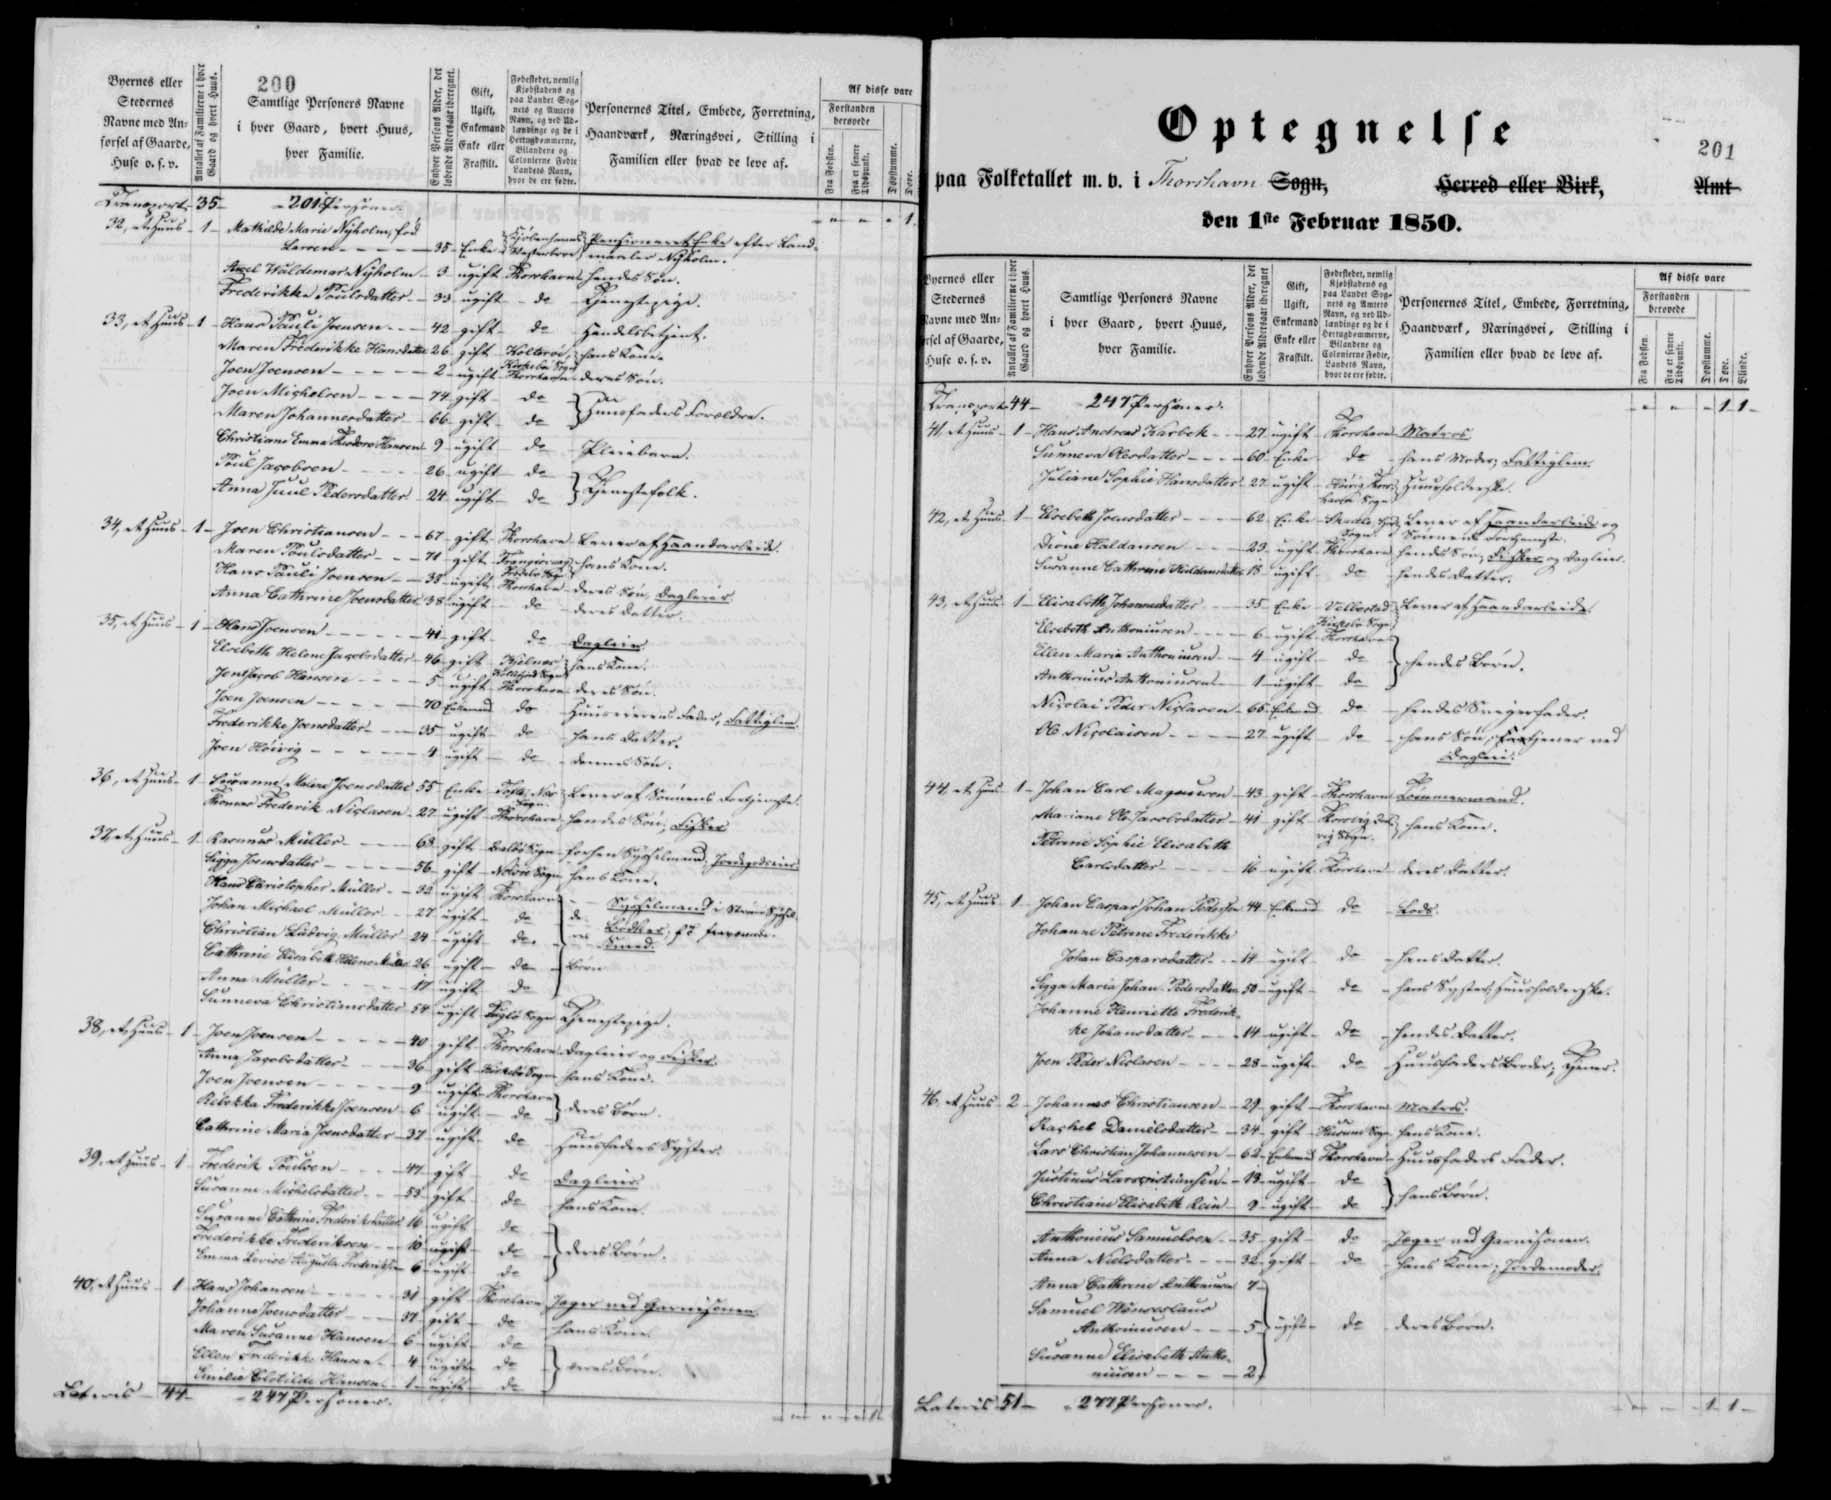 200
Byernes eller
Stedernes
Navne med An-
førsel af Gaarde,
Huse o. s. v.
Antallet af Familierne i hver
Gaard og hvert Huus.
Samtlige Personers Navne
i hver Gaard, hvert Huus,
hver Familie.
Enhver Persons Alder, det
løbende Aldersaar iberegnet.
Gift,
Ugift,
Enkemand
Enke eller
Fraskilt.
Fødestedet, nemlig
Kjøbstadens og
paa Landet Sog-
nets og Amtets
Navn, og ved Ud-
lændinge og de i
Hertugdømmerne,
Bilandene og
Colonierne Fødte
Landets Navn,
hvor de ere fødte.
Personernes Titel, Embede, Forretning,
Haandværk, Næringsvei, Stilling i
Familien eller hvad de leve af.
Af disse vare
Forstanden
berøvede
Fra Fødslen.
Fra et senere
Tidspunkt.
Døvstumme.
Døve.
Transport 35 - 201 Personer. 1
32, et Huus - 1 - Mathilde Marie Nyholm, fød
Larsen - 35 - Enke - Kjøbenhavns Pensioneret Enke efter Land-
maaler Nyholm.
Axel Waldemar Nyholm - 3 - ugift Thorshavn hendes Søn.
Frederikke Poulsdatter - 33 ugift - do Tjenestepige.
33, et Huus - 1 - Hans Pauli Joensen - 42 gift - do Handelsbetjent.
Maren Frederikke Hansdatter 26 gift hans Kone.
Joen Joensen - 2 - ugift Thorshavn deres Søn.
Joen Michelsen - 74 gift - do Huusfaders Forældre.
Maren Johannesdatter - 66 gift - do
Christiane Emma Theodora Hansen 9 ugift - do Pleiebarn.
Poul Jacobsen - 26 ugift - do Tjenestefolk.
Anna Juul Pedersdatter - 24 ugift - do
34, et Huus - 1 - Joen Christiansen - 67 - gift Thorshavn Lever af Haandarbeide.
Maren Poulsdatter - 71 gift hans Kone.
Hans Pauli Joensen - 35 - ugift Thorshavn deres Søn, Dagleier
Anna Cathrine Joensdatter 38 ugift - do deres Datter.
35, et Huus - 1 - Hans Joensen - 41 - gift - do Dagleier
Elsebeth Helene Jacobsdatter - 46 - gift hans Kone.
Jens Jacob Hansen - 5 ugift Thorshavn deres Søn.
Joen Joensen - 70 Enkemand do Huuseierens Fader, Fattiglem
Frederikke Joensdatter - 35 ugift - do hans Datter.
Joen Høivig - 4 ugift - do dennes Søn.
36, et Huus - 1 - Susanne Marie Joensdatter 55 Enke Lever af Sønnens Fortjeneste.
Thomas Frederik Niclasen - 27 ugift Thorshavn hendes Søn, Fisker
37, et Huus - 1 Rasmus Müller - 63 - gift forhen Sysselmand, Jordegodseier.
Sigga Joensdatter - 56 - gift hans Kone.
Hans Christopher Müller - 32 ugift Thorshavn Sysselmand i Strømø Syssel
Johan Michael Müller - 27 ugift do Bødker
Christian Ludvig Müller - 24 - ugift - do Smed.
Cathrine Elisabeth Helene Müller 26 ugift - do Børn
Anna Müller - 17 ugift - do
Sunneva Christiansdatter 54 ugift Fuglø Sogn Tjenestepige.
38, et Huus - 1 - Joen Joensen - 40 gift Thorshavn Dagleier og Fisker
Anna Jacobsdatter - 36 gift Kirkebø Sogn hans Kone.
Joen Joensen - 9 ugift Thorshavn
Rebekka Frederikke Joensen - 6 ugift - do deres Børn.
Cathrine Maria Joensdatter - 37 ugift do Huusfaders Syster.
39, et Huus - 1 Frederik Poulsen - 47 gift do Dagleier
Susanne Michelsdatter - 53 gift do hans Kone.
Susanne Cathrine Frederiksdatter 16 ugift do
Frederikke Frederiksen - 10 ugift do deres Børn.
Emma Lovise Augusta Frederiksen 6 ugift do
40, et Huus - 1 Hans Johansen - 31 gift Thorshavn Jæger ved Garnisonen
Johanne Joensdatter - 37 gift do hans Kone.
Maren Susanne Hansen - 6 ugift - do
Ellen Frederikke Hansen - 4 ugift do deres Børn.
Emilie Clotilde Hansen - 1 - ugift do
Lateris - 44 - 247 Personer.
Optegnelse
201
paa Folketallet m. v. i Thorshavn Sogn, Herred eller Birk, Amt
den 1ste Februar 1850.
Byernes eller
Stedernes
Navne med An-
førsel af Gaarde,
Huse o. s. v.
Antallet af Familierne i hver
Gaard og hvert Huus.
Samtlige Personers Navne
i hver Gaard, hvert Huus,
hver Familie.
Enhver Persons Alder, det
løbende Aldersaar iberegnet
Gift,
Ugift,
Enkemand
Enke eller
Fraskilt.
Fødestedet, nemlig
Kjøbstadens og
paa Landet Sog-
nets og Amtets
Navn, og ved Ud-
lændinge og de i
Hertugdømmerne,
Bilandene og
Colonierne Fødte,
Landets Navn,
hvor de ere fødte.
Personernes Titel, Embede, Forretning,
Haandværk, Næringsvei, Stilling i
Familien eller hvad de leve af.
Af disse vare
Forstanden
berøvede
Fra Fødslen.
Fra et senere
Tidspunkt.
Døvstumme.
Døve.
Blinde.
Transport 44 - 247 Personer. 1 1
41, et Huus - 1 - Hans Andreas Karbek - 27 ugift Thorshavn Matros
Sunneva Olesdatter - 60 - Enke do hans Moder, Fattiglem
Juliane Sophie Hansdatter 27 ugift Huusholderske.
42, et Huus 1 - Elsebeth Joensdatter - 62 Enke Lever af Haandarbeide og
Sønnens Fortjeneste.
Haldansen - 23 - ugift Thorshavn hendes Søn, Fisker og Dagleier
Susanne Cathrine Haldansdatter 15 ugift do hendes Datter.
43, et Huus 1 - Elisabeth Johannesdatter - 35 Enke Velbestad Lever af Haandarbeide.
Kirkebø Sogn
Elsebeth Anthoniusen - 6 - ugift Thorshavn
Ellen Maria Anthoniusen - 4 ugift do hendes Børn.
Anthonius Anthoniusen - 1 ugift - do
Nicolai Peder Niclasen - 66 - Enkemd do hendes Svigerfader.
Ole Nicolaisen - 27 ugift do hans Søn, Fortjener ved
Dagleie.
44, et Huus 1 - Johan Carl Magnusen - 43 gift - Thorshavn Tømmermand.
Mariane Ols Jacobsdatter - 41 gift hans Kone.
Petrine Sophie Elisabeth
Carlsdatter - 16 ugift Thorshavn deres Datter.
45, et Huus 1 Johan Caspar Johan Pedersen 44 Enkemd do Lods.
Johanne Petrine Frederikke
Johan Casparsdatter - 14 ugift do hans Datter.
Sigga Maria Johan Pedersdatter 50 - ugift - do hans Syster, Huusholderske.
Johanne Henriette Frederik-
ke Johansdatter - 14 ugift - do hendes Datter.
Joen Peder Niclasen - 28 - ugift do Huusfaders Broder, Tjener.
46, et Huus - 2 - Johannes Christiansen - 29 - gift Thorshavn Matros.
Rachel Danielsdatter - 34 - gift hans Kone.
Lars Christian Johannesen - 62 - Enkemd Thorshavn - Huusfaders Fader.
Justinus Larschristiansen - 13 - ugift do hans Børn.
Christiane Elisabeth Rein - 9 ugift - do
Anthonius Samuelsen - 35 - gift do Jæger ved Garnisonen.
Anna Nielsdatter - 32 - gift do hans Kone, Jordemoder.
Anna Cathrine Anthoniusen 7
Samuel Wenceslaus
Anthoniusen - 5 ugift do deres Børn.
Susanne Elisabeth Antho-
niusen - 2
Lateris 51 - 277 Personer. 1 1